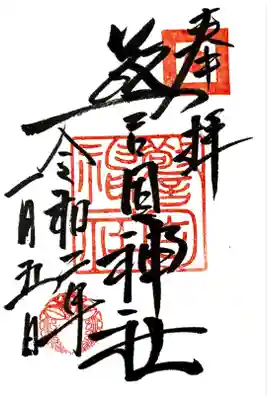 奉拝
警固神社
令和二年
一月五日